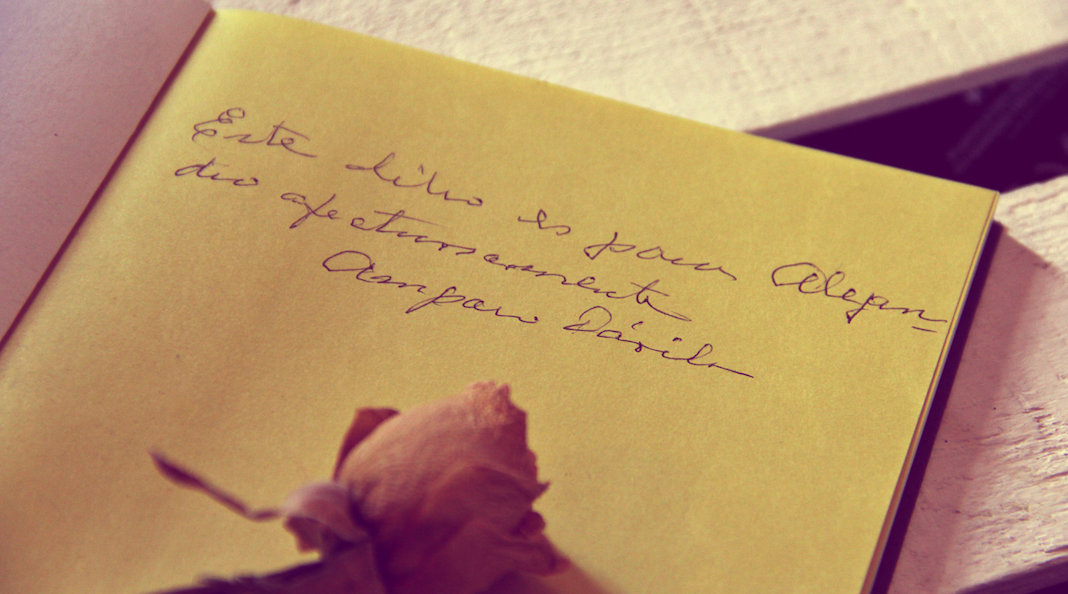 Este libro es para Alejan-
dro afectuosamente
Amparo Dávila